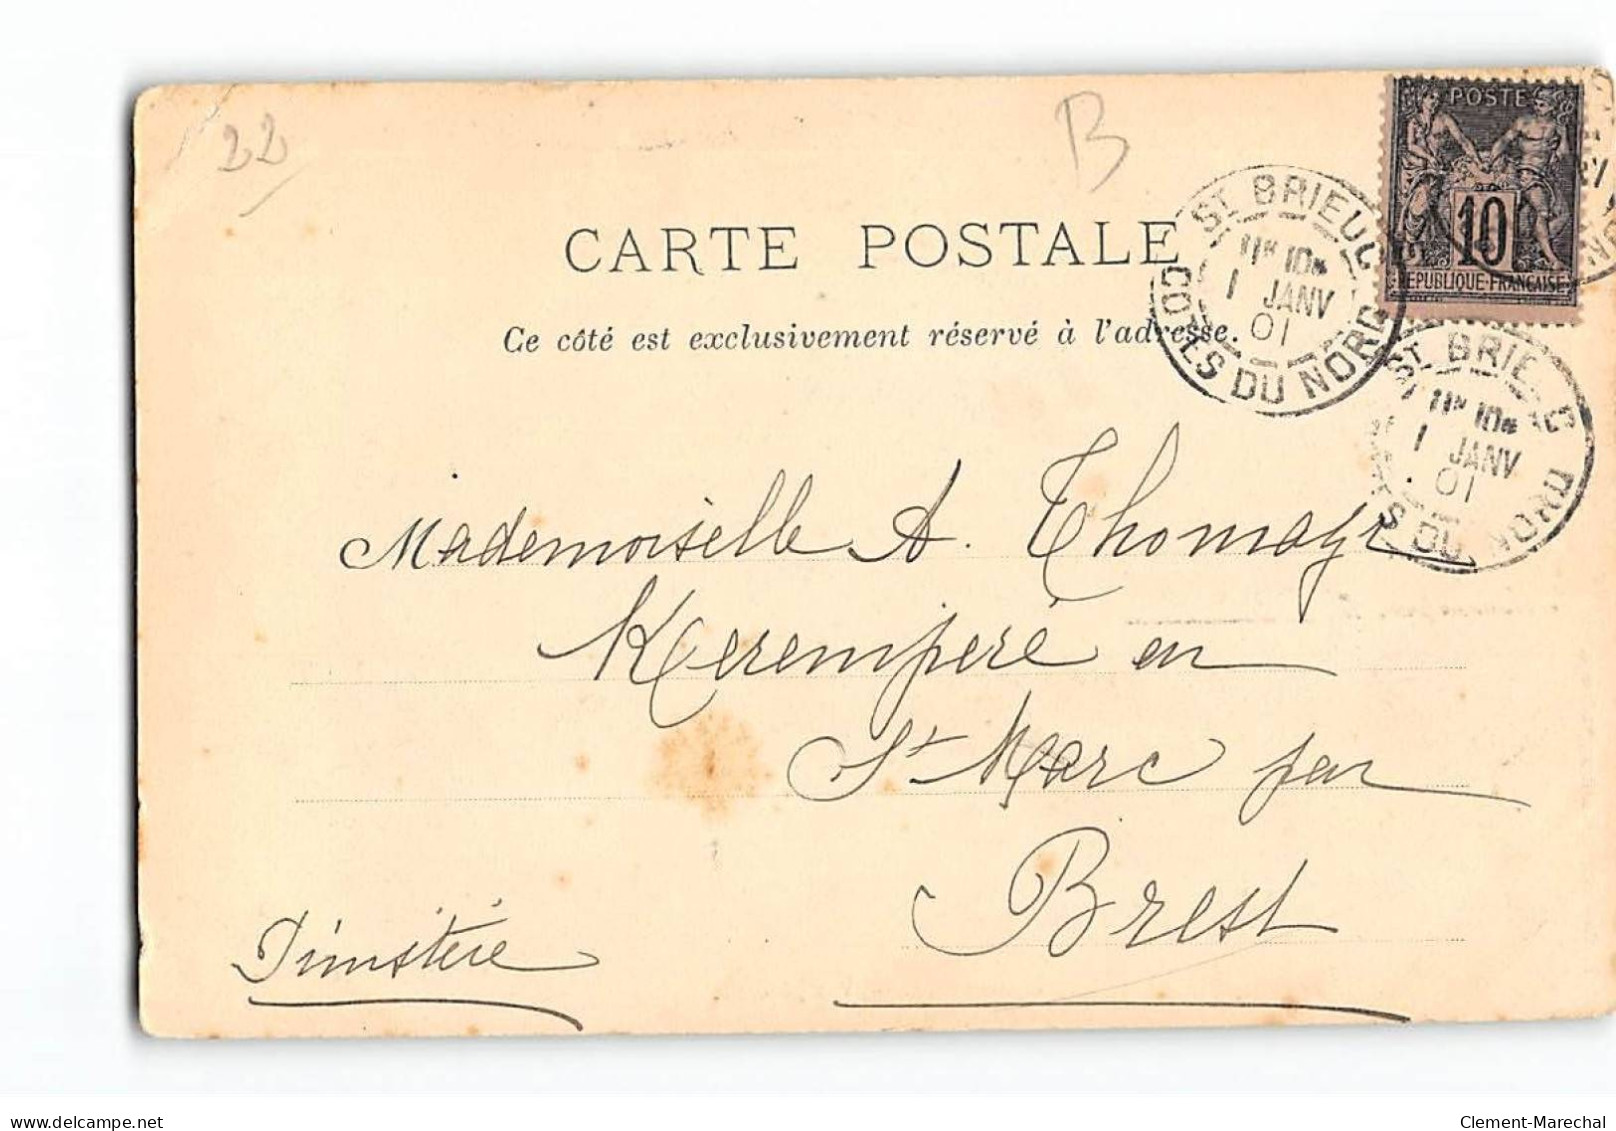 22
B
POSTE
10
REPUBLIQUE FRANCAISE
ST BRIEUC
11E 10M
1 JANV
01
COTES DU NORD
CARTE POSTALE
Ce côté est exclusivement réservé à l'adresse.
ST BRIEUC
11E 10M
1 JANV
01
S DU NORD
Mademoiselle A. Thomaze
Kerempéré en
St Marc par
Brest
Finistère
delcampe.net
Clement-Marechal